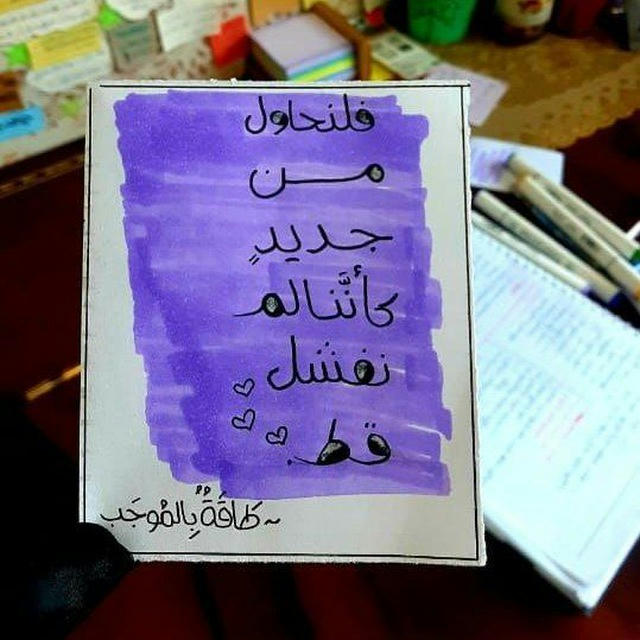 فلنحاول
من
جديدٍ
كأنَّنا لم
نفشل
قط.
~ طاقَةٌ بِالمُوجَب